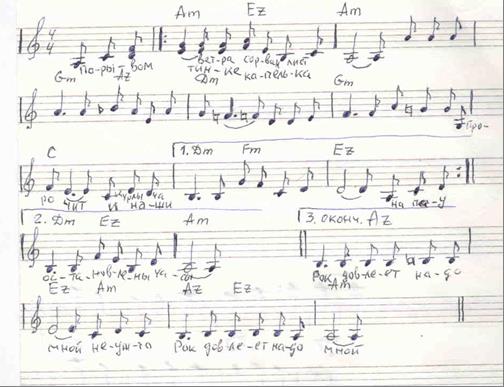 Am Ez Am
4
4
По-ры-вом Вет-ра сор-ван лист
тин-ке ка-пель-ка
Gm Az Dm Gm
Про-
C 1. Dm Fm Ez
ро чит и на-ши
на па-у
2. Dm Ez Am 3. оконч. Az
ос-та-нов-ле-ны ча-сы Рок дов-ле-ет на-до
Ez Am Az Ez Am
мной не-уж-то Рок дов-ле-ет на-до мной